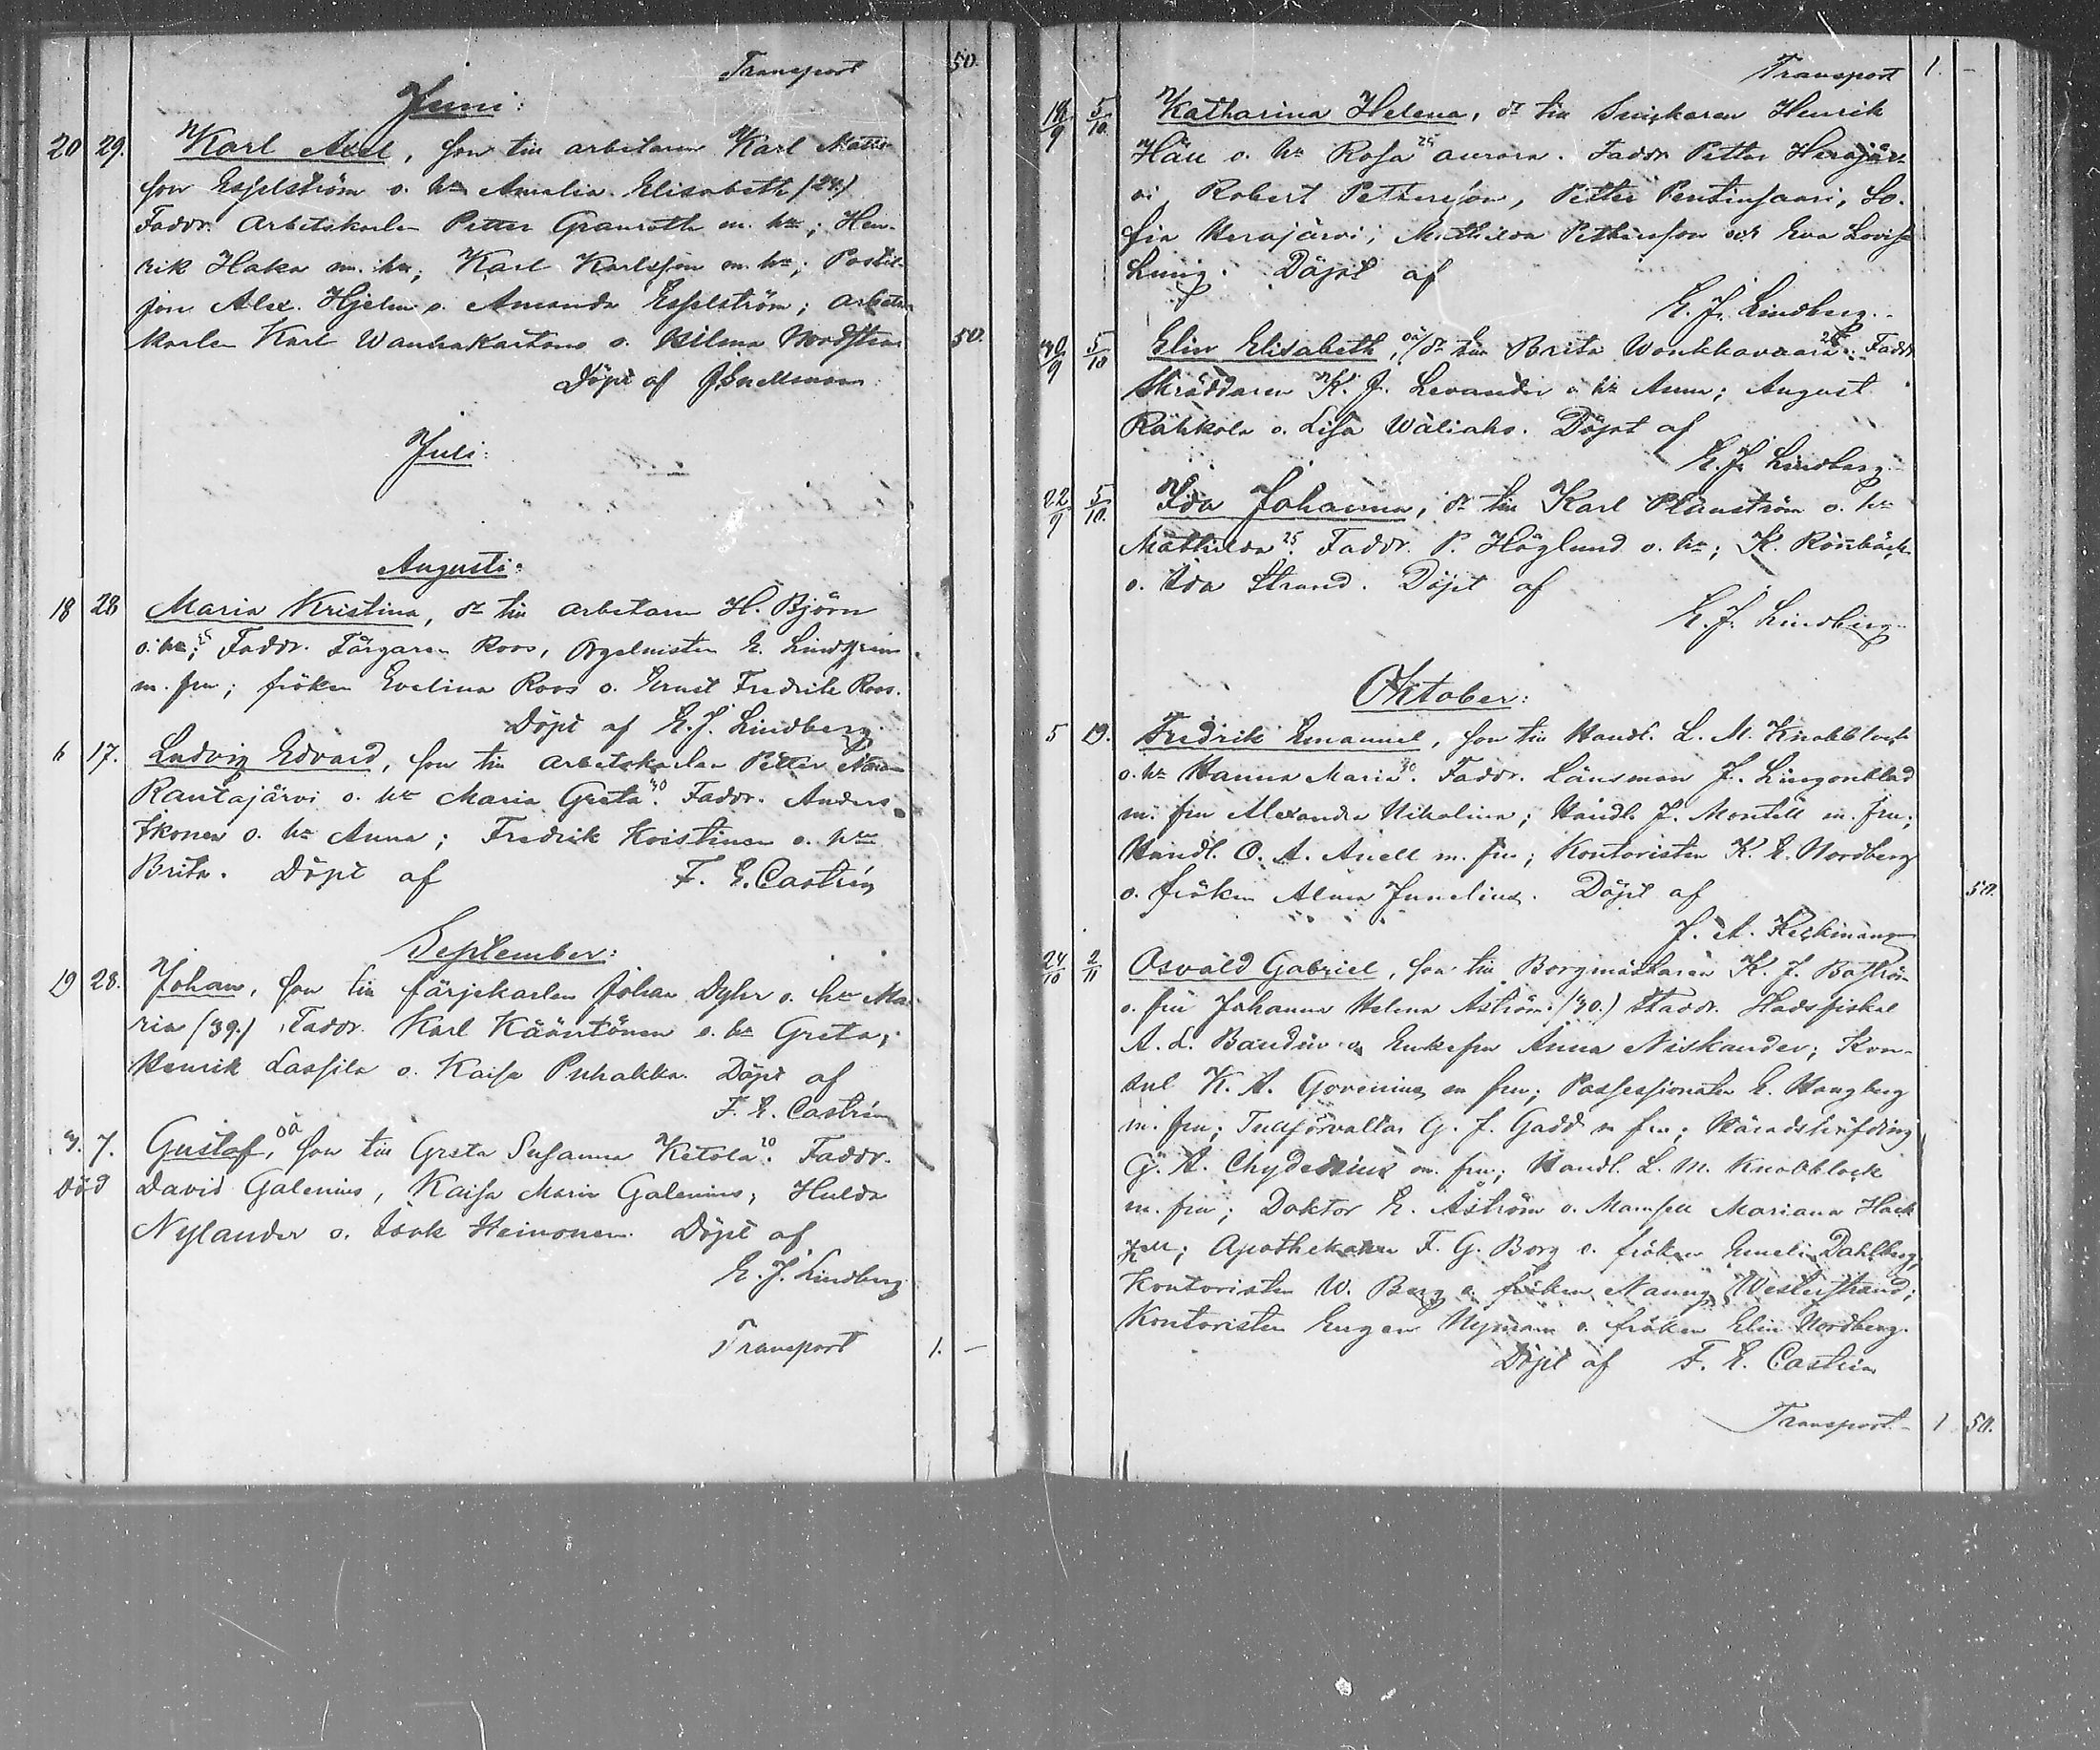 Transport 50.
Juni:
20 29. Karl Axel, son till arbetaren Karl Matts-
son Esselström o. h:u Amalia Elisabeth (24.)
Faddr. Arbetskarlen Petter Granroth m. h:u; Hen-
rik Haka m. h:u; Karl Karlsson m. h:u; Postil-
jon Alex. Hjelm o. Amanda Esselström; arbets-
karlen Karl Wanhakartano o. Wilma Nordström 50.
Döpt af J Snellman.
Juli:
Augusti:
18 28 Maria Kristina, dr till arbetaren H. Björn
o. h:u; Faddr. Färgaren Roos, Orgelnisten E. Lindgren
m. fru; fröken Evelina Roos o. Ernst Fredrik Roos.
Döpt af E. J. Lindberg.
6 17. Ludvig Edvard, son till arbetskarlen Petter
Rautajärvi o. h:u Maria Greta 40. Faddr. Anders
Ikonen o. h:u Anna; Fredrik Koistinen o. h:u
Brita. Döpt af F. E. Castrén
September:
19 28. Johan, son till färjekarlen Johan Dyhr o. h:u Ma-
ria (39.) Faddr. Karl Kääntönen o. h:u Greta;
Henrik Lassila o. Kaisa Puhakka. Döpt af
F. E. Castrén
3. 7. Gustaf, oä son till Greta Susanna Ketola 20. Faddr.
Död David Galenius, Kaisa Maria Galenius, Hulda
Nylander o. Isak Heinonen. Döpt af
E. J. Lindberg
Transport 1. –
Transport 1. –
18/9 5/10. Katharina Helena, dr till Snickaren Henrik
Häll o. h:u Rosa 25 Aurora. Faddr. Petter Herajär-
vi, Robert Pettersson, Petter Pentinsaari, So-
fia Herajärvi, Mathilda Pettersson och Eva Lovisa
Döpt af
E. J. Lindberg.
30/9 5/10 Elin Elisabeth, oä dr till Brita Wonkkavaara 28. Faddr
Skräddaren K. J. Levander o. h:u Anna; August
Rähkola o. Lisa Wäliaho. Döpt af
E. J. Lindberg.
22/9 5/10. Ida Johanna, dr till Karl Planström o. h:u
Mathilda 25. Faddr. P. Höglund o. h:u; K. Rönnbäck
o. Ida Strand. Döpt af
E. J. Lindberg
Oktober:
5 19. Fredrik Emanuel, son till Handl. L. M. Knobblock
o. h:u Hanna Maria 30. Faddr. Länsman J. Lingonblad
m. fru Alexandra Nikolina; Handl. J. Montell m. fru;
Handl. O. A. Anell m. fru; Kontoristen K. E. Nordberg
o. fröken Alma Junelius. Döpt af 50.
J. A. Heckman
24/10 2/11 Osvald Gabriel, son till Borgmästaren K. J. Boström
o. fru Johanna Helena Åström. (30.) Faddr. Hofsfiskal
A. L. Baudin o. Enkefru Anna Niskander; Kon-
sul K. A. Govenius m fru; Possessionaten E. Haugberg
m. fru; Tullförvaltar G. J. Gadd m fru; Häradshöfding
G. A. Chydenius m. fru; Handl. L. M. Knobblock
m. fru; Doktor E. Åström o. Mamsell Mariana Hack-
zell; Apothekaren F. G. Borg o. fröken Emeli Dahlberg,
Kontoristen W. Berg o. fröken Nanny Westerstrand;
Kontoristen Eugen Nyman o. fröken Elin Nordberg.
Döpt af F. E. Castrén
Transport. 1 50.